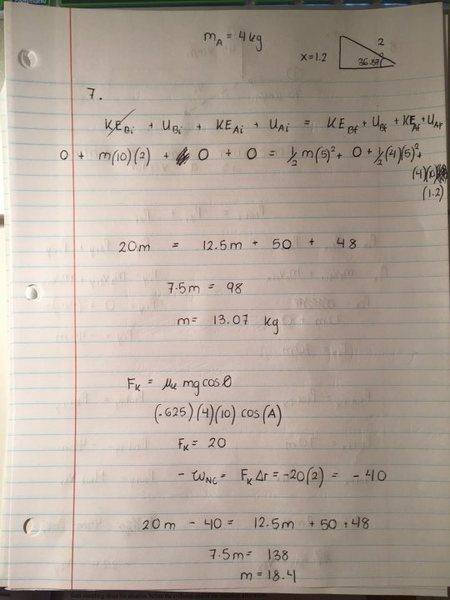 mA = 4kg
2
x=1.2
36.87°
7.
KEBi + UBi + KEAi + UAi = KEBf + UBf + KEAf + UAf
0 + m(10)(2) + 0 + 0 = 1/2 m(5)² + 0 + 1/2(4)(5)² +
(4)(10)
(1.2)
20m = 12.5m + 50 + 48
7.5m = 98
m= 13.07 kg
FK = μk mg cosθ
(.625)(4)(10) cos(A)
FK = 20
- WNC = FK Δr = -20(2) = -40
20m - 40 = 12.5m + 50 + 48
7.5m = 138
m = 18.4